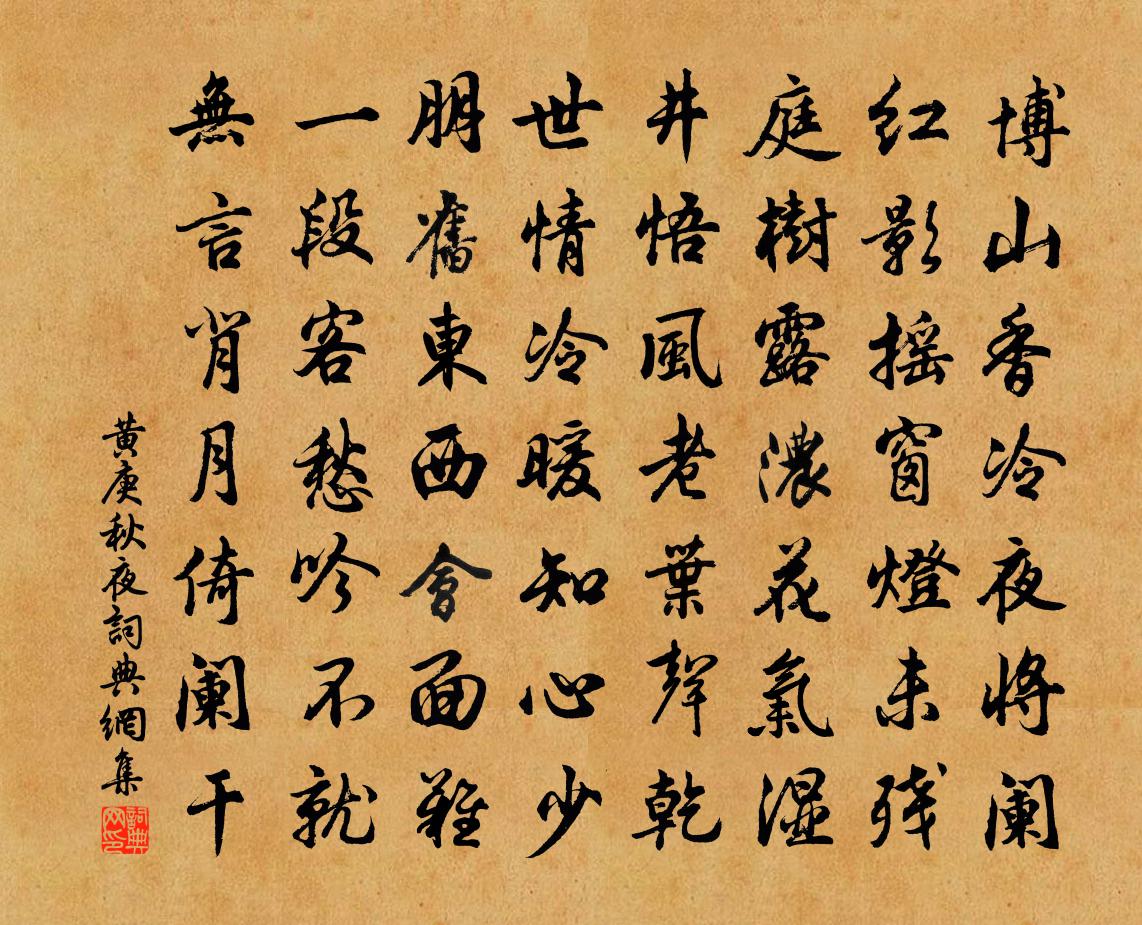 博山香冷夜将阑
红影摇窗燈未残
庭樹露濃花氣湿
井悟風老葉聲乾
世情冷暖知心少
朋舊東西會面難
一段客愁吟不就
無言肖月倚阑干
黄庚秋夜詞典網集
詞典网印